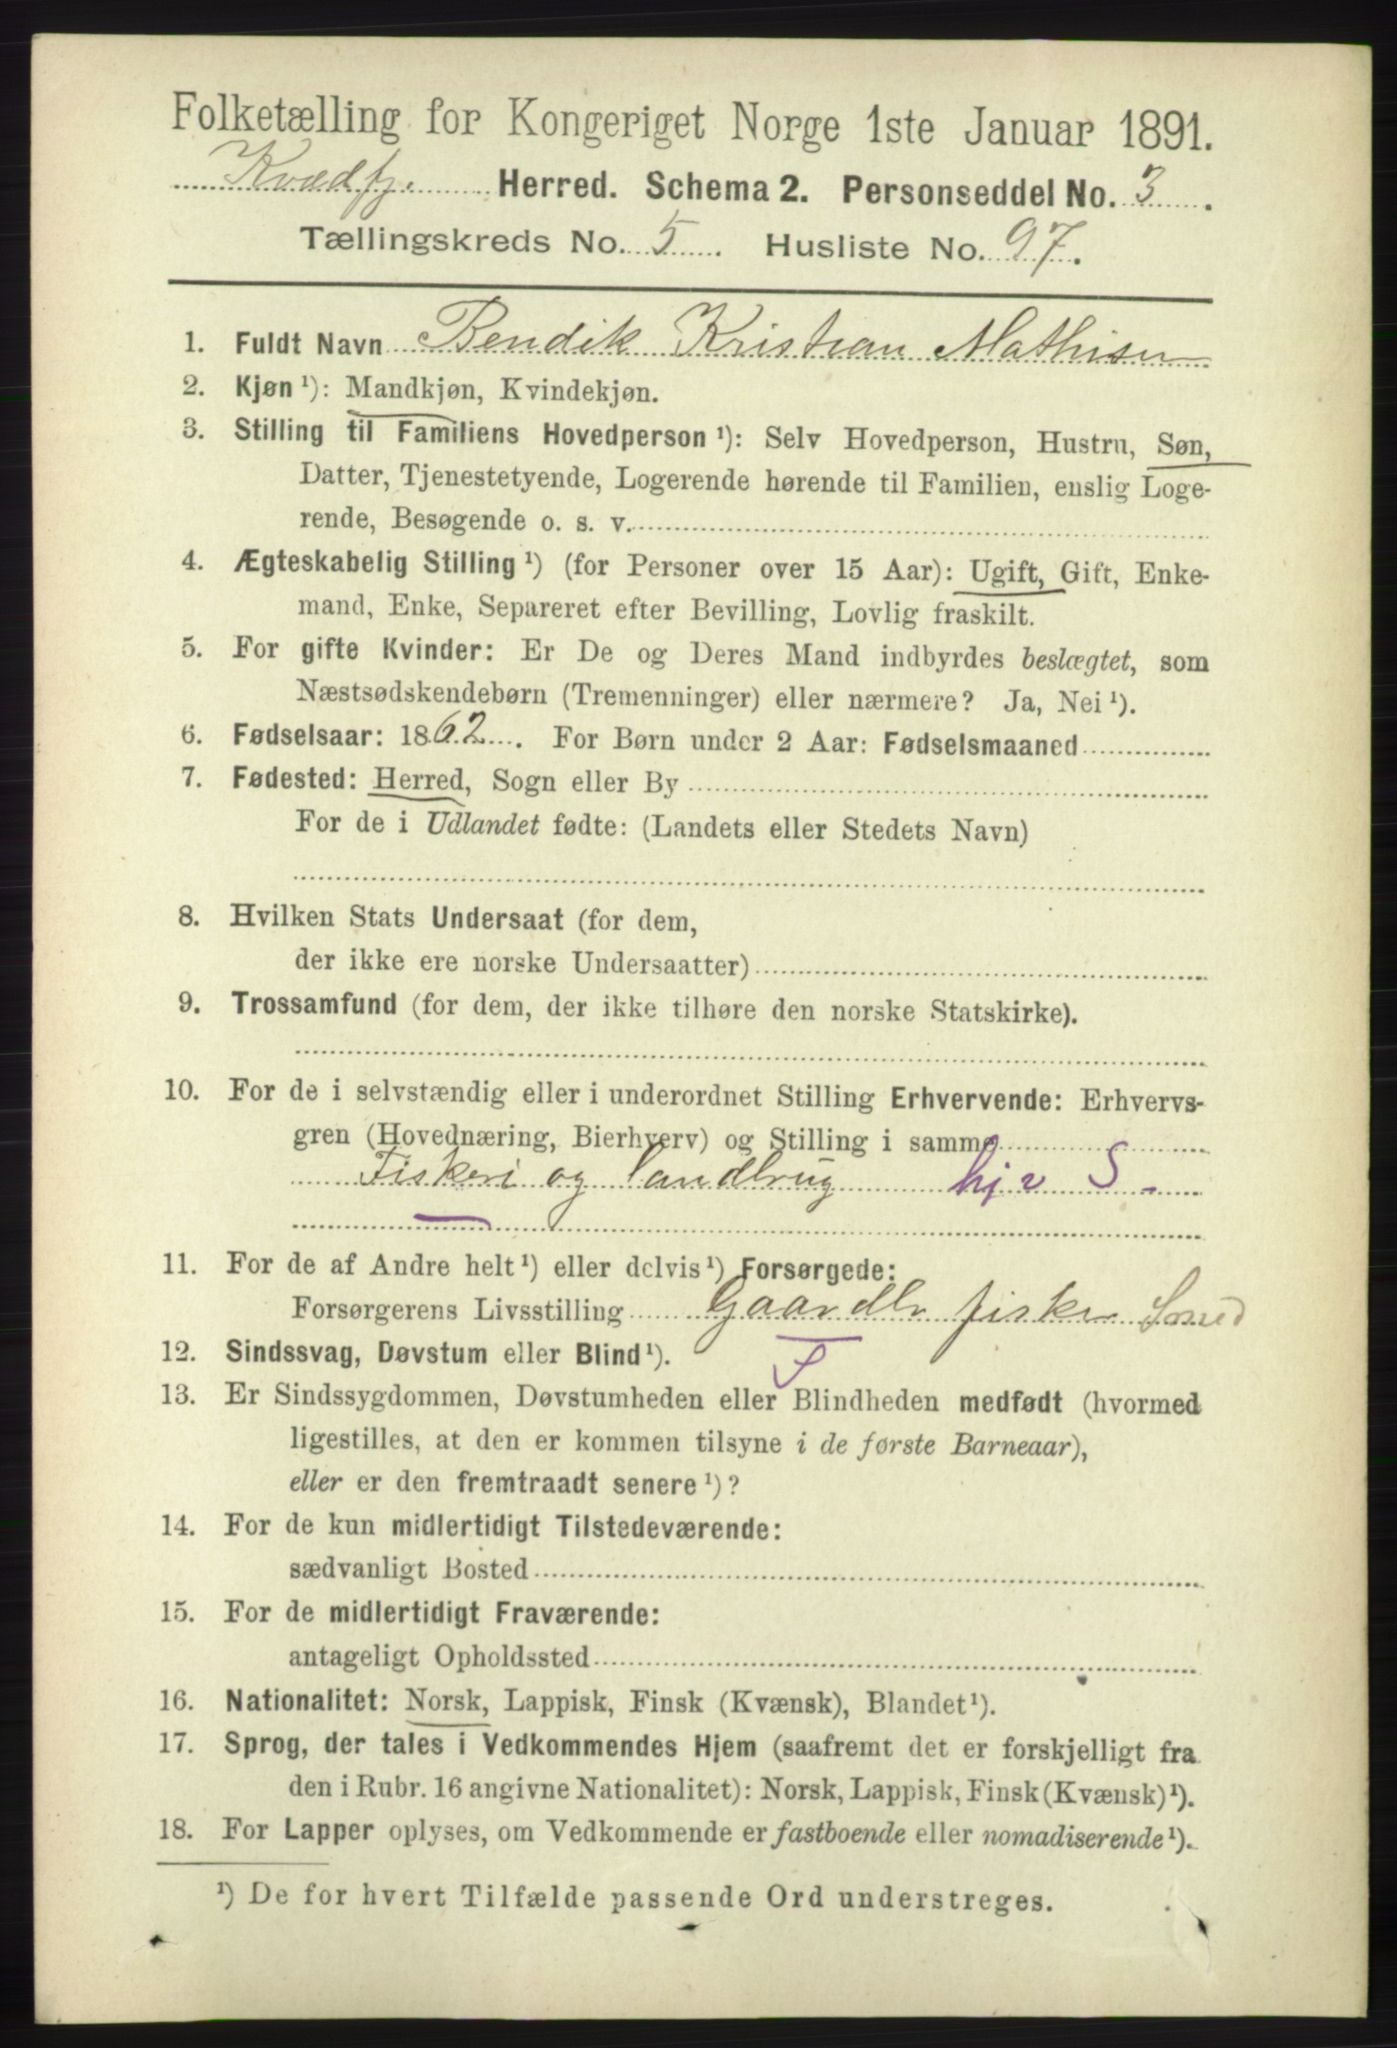 Folketælling for Kongeriget Norge 1ste Januar 1891.
Kvædfj. Herred. Schema 2. Personseddel No. 3.
Tællingskreds No. 5. Husliste No. 97.
1. Fuldt Navn Bendik Kristian Mathisen
2. Kjøn ¹): Mandkjøn, Kvindekjøn.
3. Stilling til Familiens Hovedperson ¹): Selv Hovedperson, Hustru, Søn,
Datter, Tjenestetyende, Logerende hørende til Familien, enslig Loge-
rende, Besøgende o. s. v.
4. Ægteskabelig Stilling ¹) (for Personer over 15 Aar): Ugift, Gift, Enke-
mand, Enke, Separeret efter Bevilling, Lovlig fraskilt.
5. For gifte Kvinder: Er De og Deres Mand indbyrdes beslægtet, som
Næstsødskendebørn (Tremenninger) eller nærmere? Ja, Nei ¹).
6. Fødselsaar: 1862. For Børn under 2 Aar: Fødselsmaaned
7. Fødested: Herred, Sogn eller By
For de i Udlandet fødte: (Landets eller Stedets Navn)
8. Hvilken Stats Undersaat (for dem,
der ikke ere norske Undersaatter)
9. Trossamfund (for dem, der ikke tilhøre den norske Statskirke).
10. For de i selvstændig eller i underordnet Stilling Erhvervende: Erhvervs-
gren (Hovednæring, Bierhverv) og Stilling i samme
Fiskeri og landbrug hjv S.
11. For de af Andre helt ¹) eller delvis ¹) Forsørgede:
Forsørgerens Livsstilling Gaardbr fisker Smed
F
12. Sindssvag, Døvstum eller Blind ¹).
13. Er Sindssygdommen, Døvstumheden eller Blindheden medfødt (hvormed
ligestilles, at den er kommen tilsyne i de første Barneaar),
eller er den fremtraadt senere ¹)?
14. For de kun midlertidigt Tilstedeværende:
sædvanligt Bosted
15. For de midlertidigt Fraværende:
antageligt Opholdssted
16. Nationalitet: Norsk, Lappisk, Finsk (Kvænsk), Blandet ¹).
17. Sprog, der tales i Vedkommendes Hjem (saafremt det er forskjelligt fra
den i Rubr. 16 angivne Nationalitet): Norsk, Lappisk, Finsk (Kvænsk) ¹).
18. For Lapper oplyses, om Vedkommende er fastboende eller nomadiserende ¹).
¹) De for hvert Tilfælde passende Ord understreges.